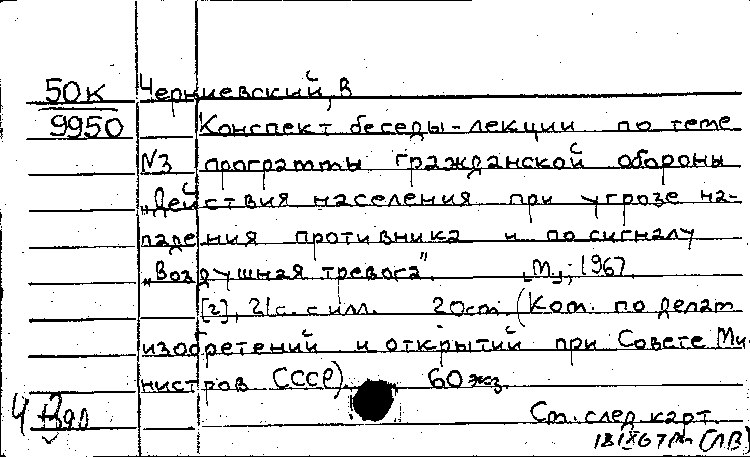 50к Черниевский, В
9950 Конспект беседы-лекции по теме
N3 программы гражданской обороны
„Действия населения при угрозе на-
падения противника и по сигналу
„Воздушная тревога". М., 1967.
[2], 21с. с илл. 20см. (Ком. по делам
изобретений и открытий при Совете Ми-
нистров СССР). 60 экз.
Ст. след. карт.
[ЛВ]